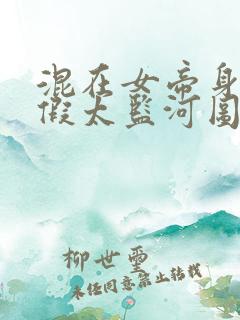 混在女帝身
假太监河图
柳世墨
未经同意禁止转载